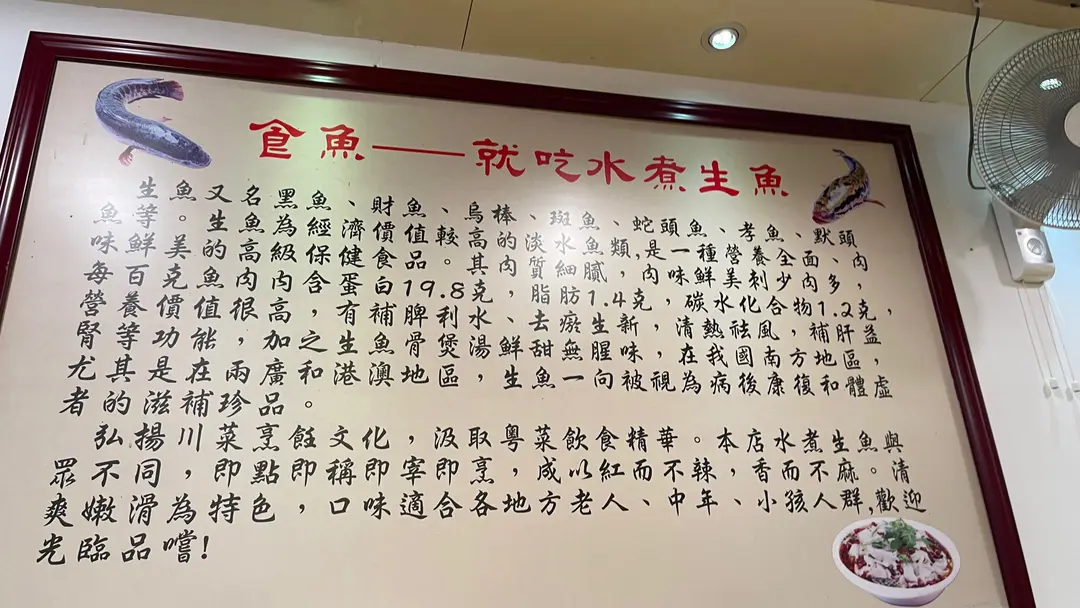 食魚——就吃水煮生魚
生魚又名黑魚、財魚、烏棒、斑魚、蛇頭魚、孝魚、默頭
魚等。生魚為經濟價值較高的淡水魚類,是一種營養全面、肉
味鮮美的高級保健食品。其肉質細膩,肉味鮮美刺少肉多,
每百克魚肉内含蛋白19.8克,脂肪1.4克,碳水化合物1.2克,
營養價值很高,有補脾利水、去瘀生新,清熱祛風,補肝益
腎等功能,加之生魚骨煲湯鮮甜無腥味,在我國南方地區,
尤其是在兩廣和港澳地區,生魚一向被視為病後康復和體虛
者的滋補珍品。
弘揚川菜烹飪文化,汲取粵菜飲食精華。本店水煮生魚與
眾不同,即點即稱即宰即烹,成以紅而不辣,香而不麻。清
爽嫩滑為特色,口味適合各地方老人、中年、小孩人群,歡迎
光臨品嚐!